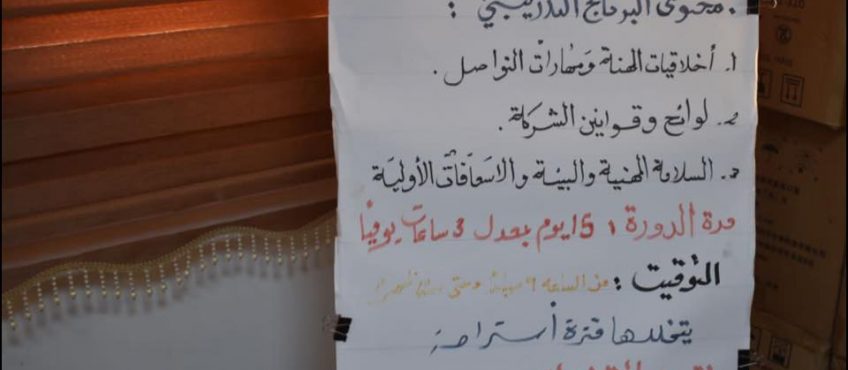 محتوى البرنامج التدريبي :
1. أخلاقيات المهنة ومهارات التواصل .
2. لوائح وقوانين الشركة .
3. السلامة المهنية والبيئة والاسعافات الأولية
مدة الدورة : 15 يوم بمعدل 3 ساعات يوميا
التوقيت : من الساعة 9 صباحا وحتى
يتخللها فترة أستراحة